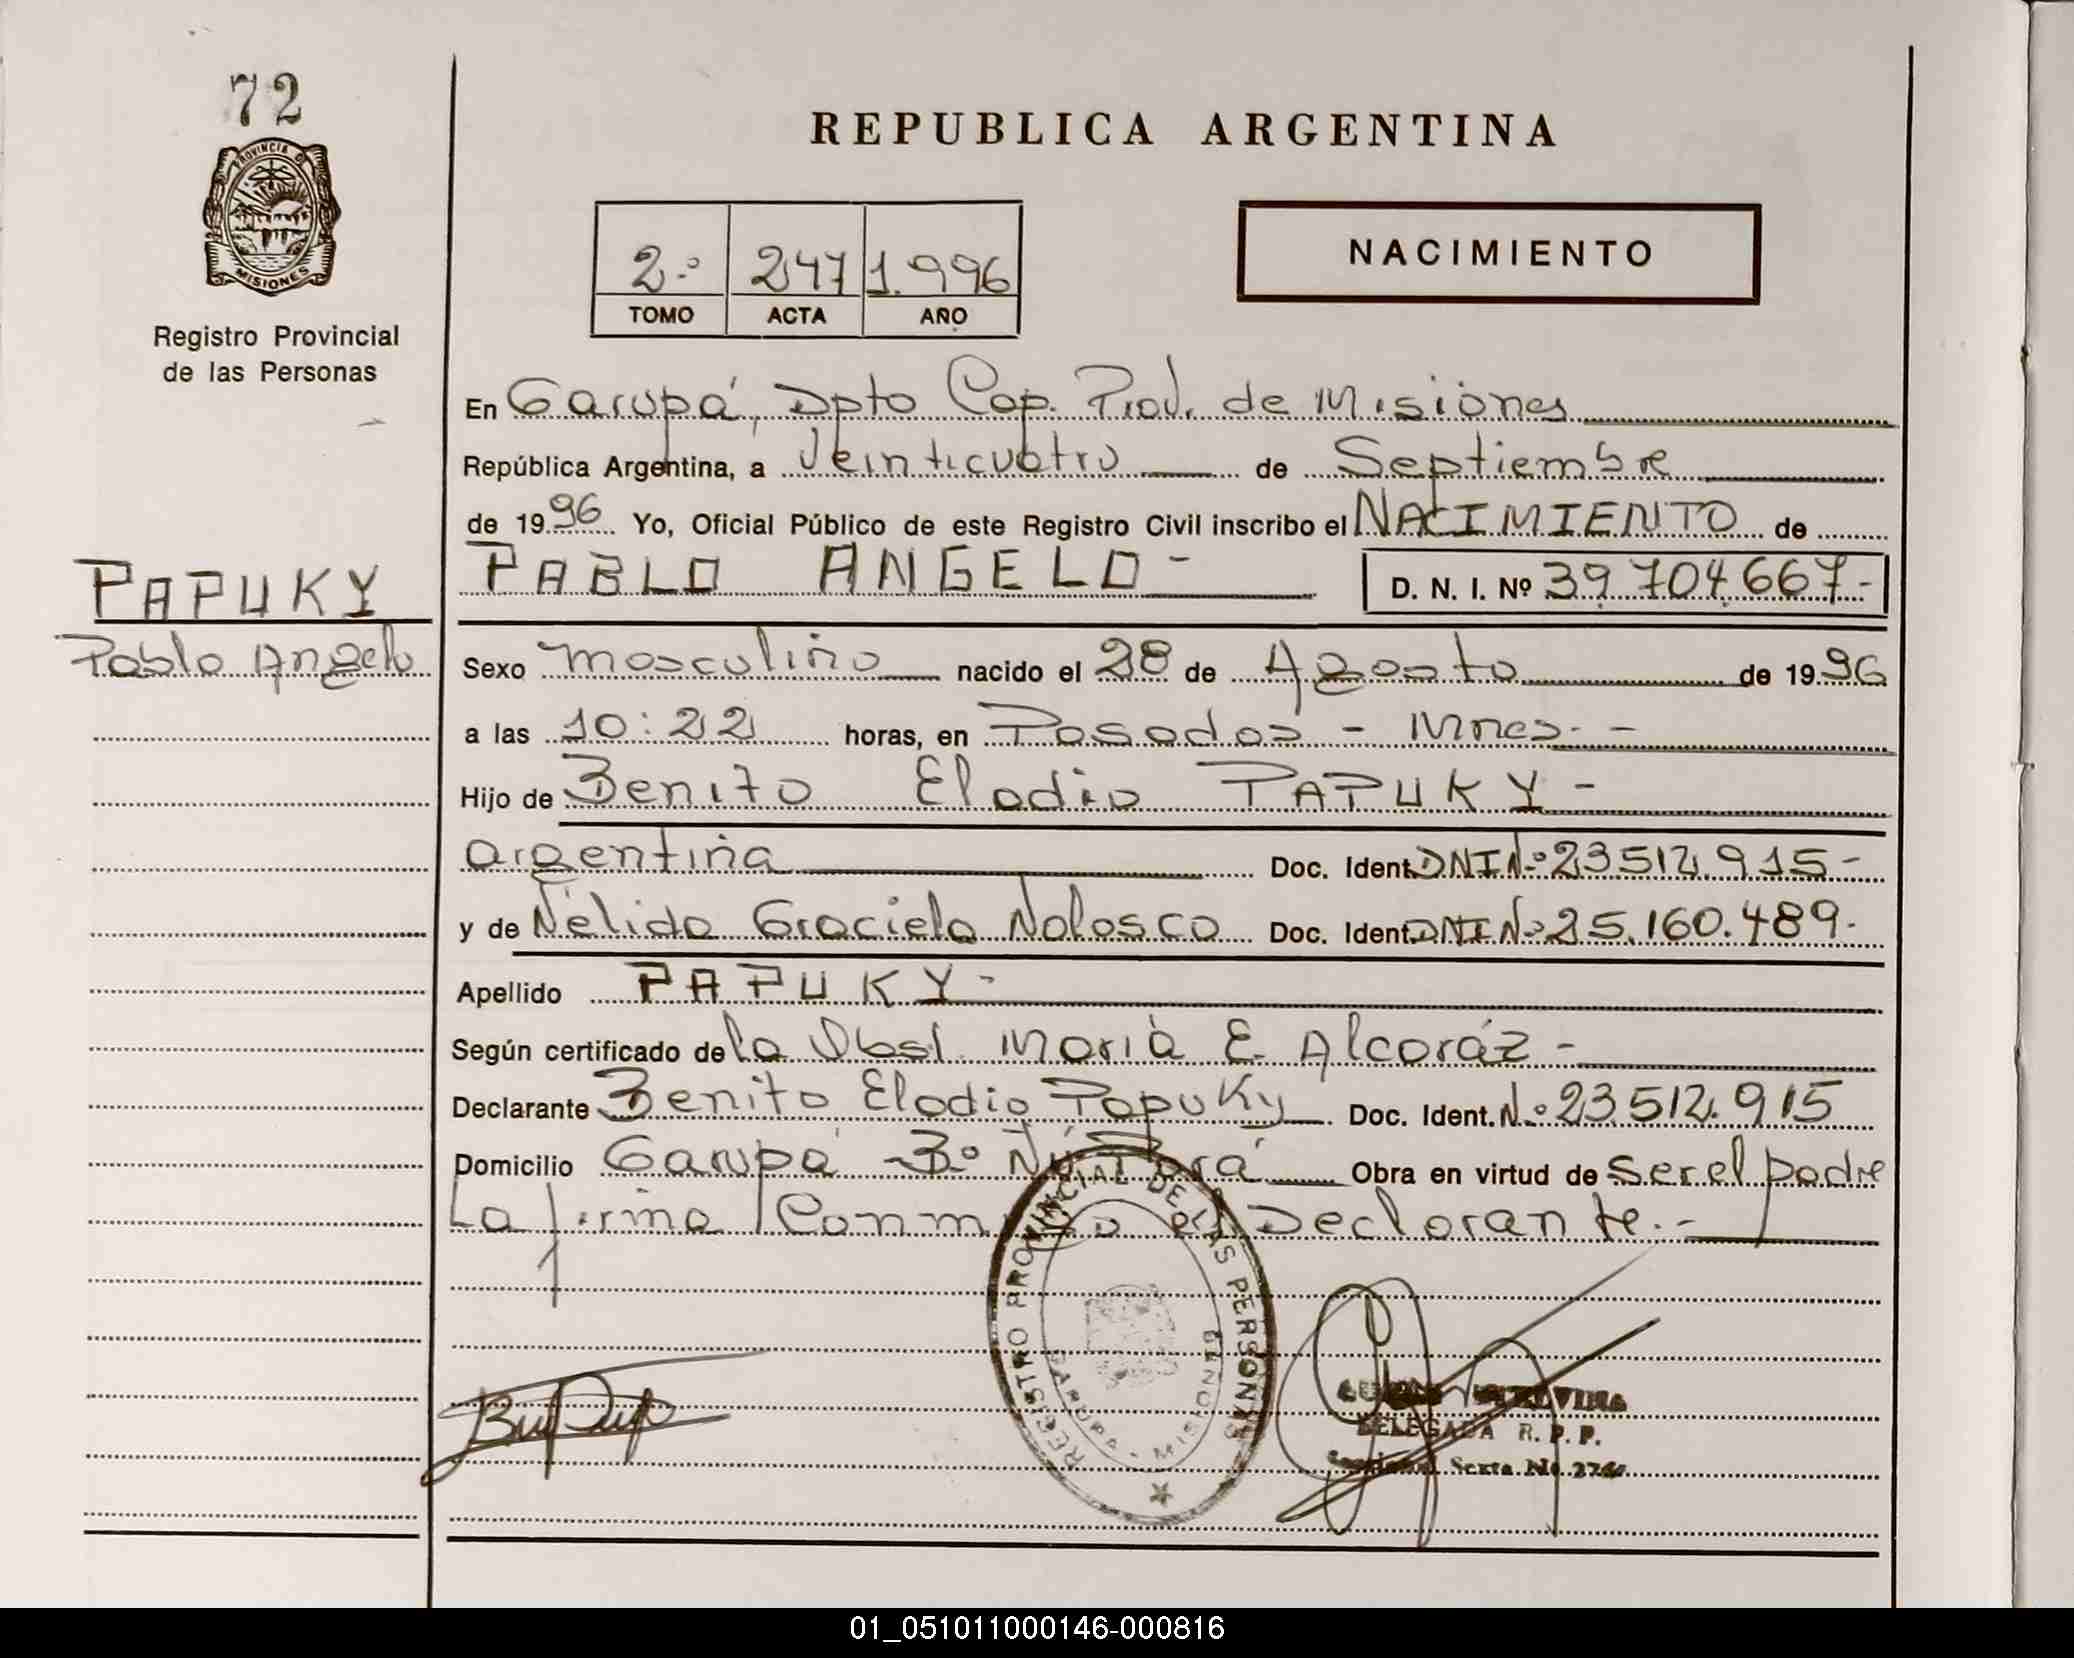 72
PROVINCIA DE
MISIONES
Registro Provincial
de las Personas
PAPUKY
Pablo Angelo
REPUBLICA ARGENTINA
2º 247 1.996
TOMO ACTA AÑO
NACIMIENTO
En Garupá, Dpto Cap. Prov. de Misiones
República Argentina, a Veinticuatro de Septiembre
de 1996 Yo, Oficial Público de este Registro Civil inscribo el NACIMIENTO de
PABLO ANGELO - D. N. I. Nº 39.704.667-
Sexo masculino nacido el 28 de Agosto de 1996
a las 10:22 horas, en Posadas - Mnes. -
Hijo de Benito Elodio PAPUKY -
argentina Doc. Ident. DNI Nº 23.512.915-
y de Nélida Graciela Nolosco Doc. Ident. DNI Nº 25.160.489-
Apellido PAPUKY -
Según certificado de la Obst. María E. Alcoráz -
Declarante Benito Elodio Papuky Doc. Ident. Nº 23.512.915
Domicilio Garupá Bº Ñu Porá Obra en virtud de ser el padre
La firma Conmigo el Declarante.-
REGISTRO PROVINCIAL DE LAS PERSONAS
GARUPA - MISIONES
DELEGADA R. P. P.
Sexta No.
01_051011000146-000816